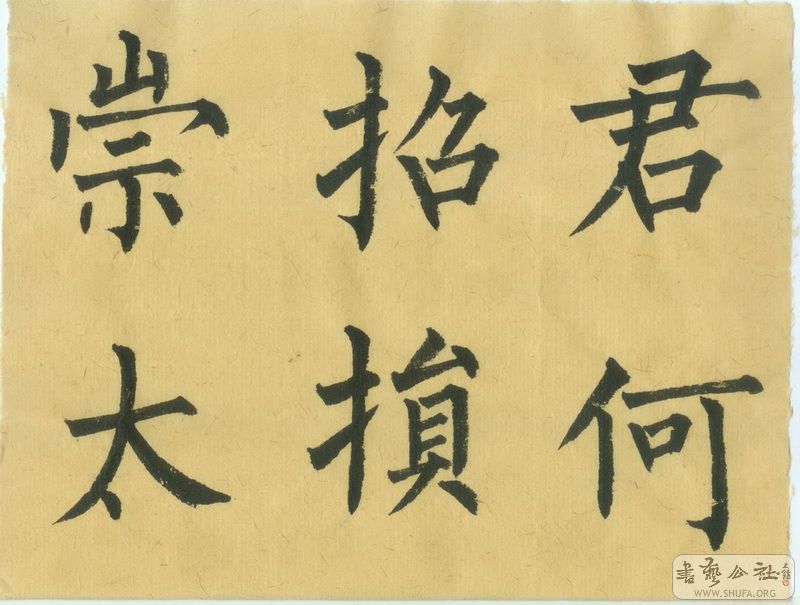 君何
招損
崇太
書藝公社
WWW.SHUFA.ORG